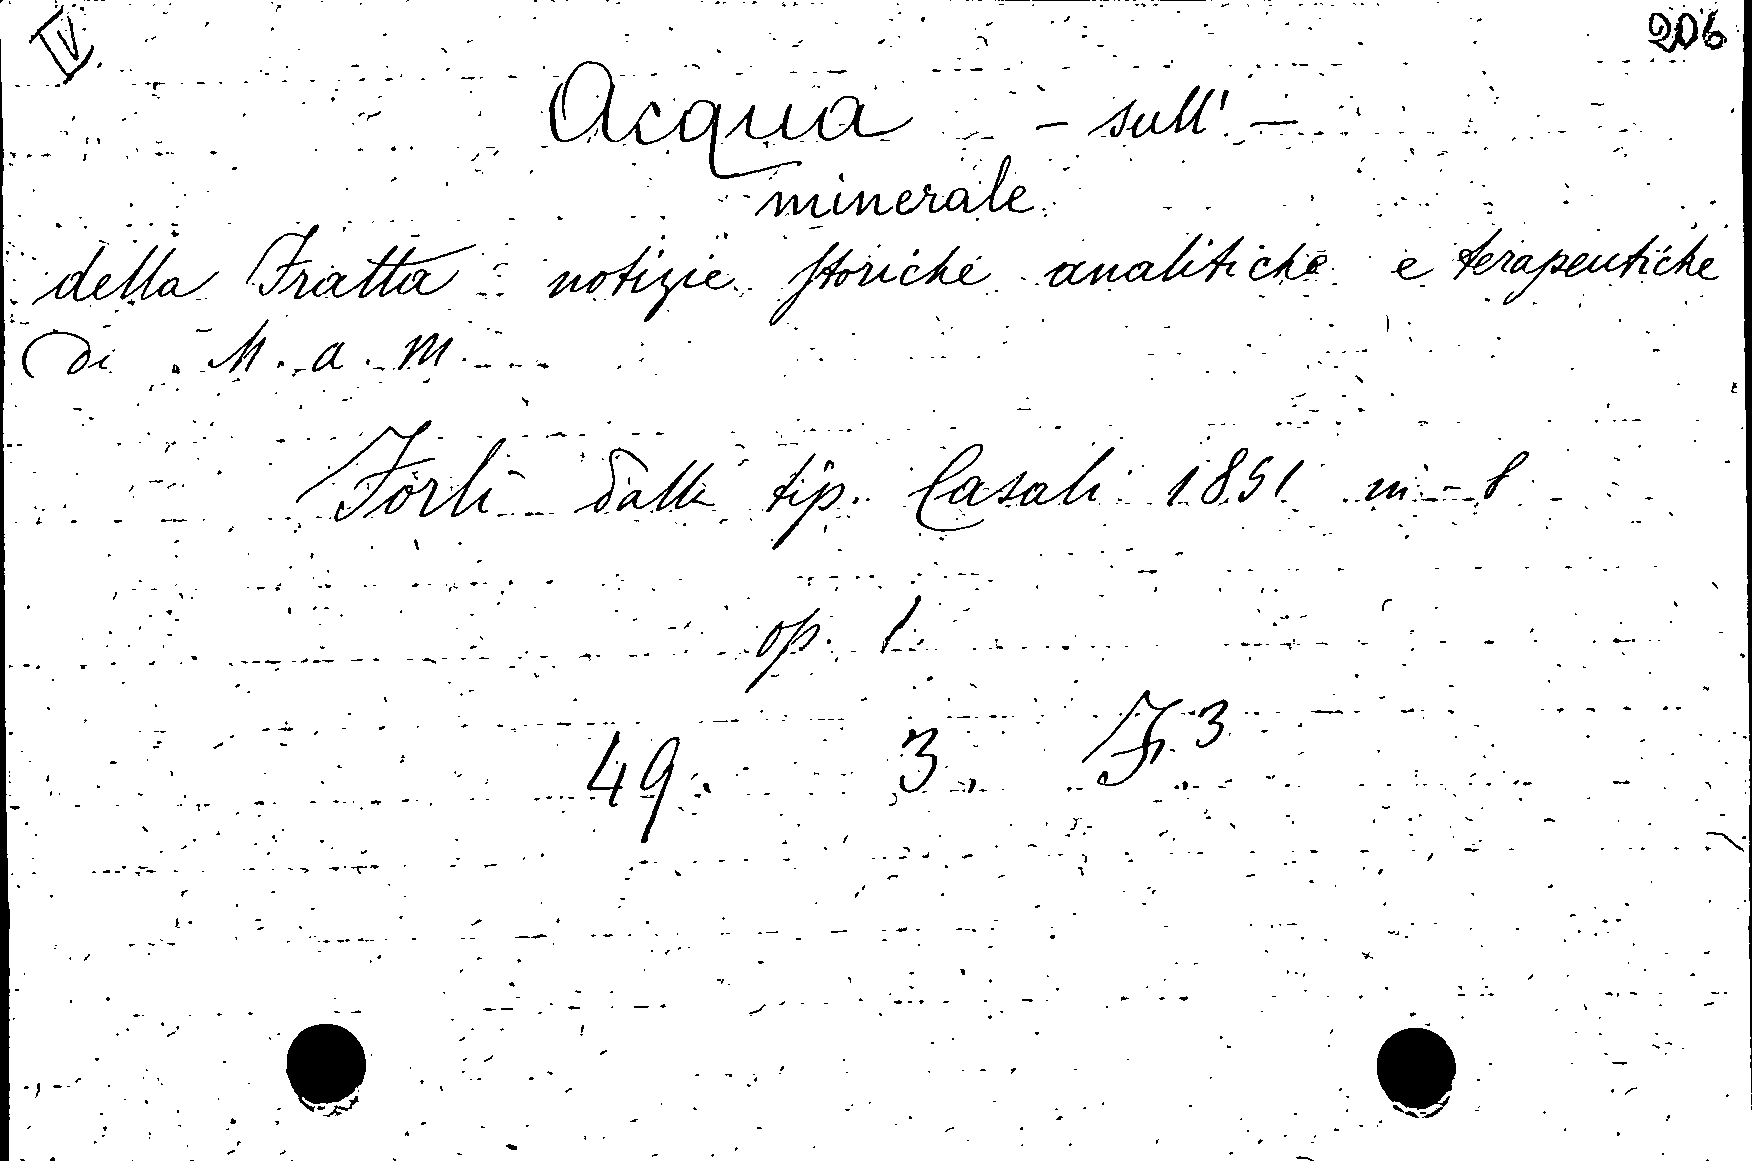 IV.
206
Acqua - sull' -
minerale
della Fratta notizie storiche analitiche e terapeutiche
di M. a. M.
Forlì dalla tip. Casali 1851 in-8
op. 1
49. 3. F.3